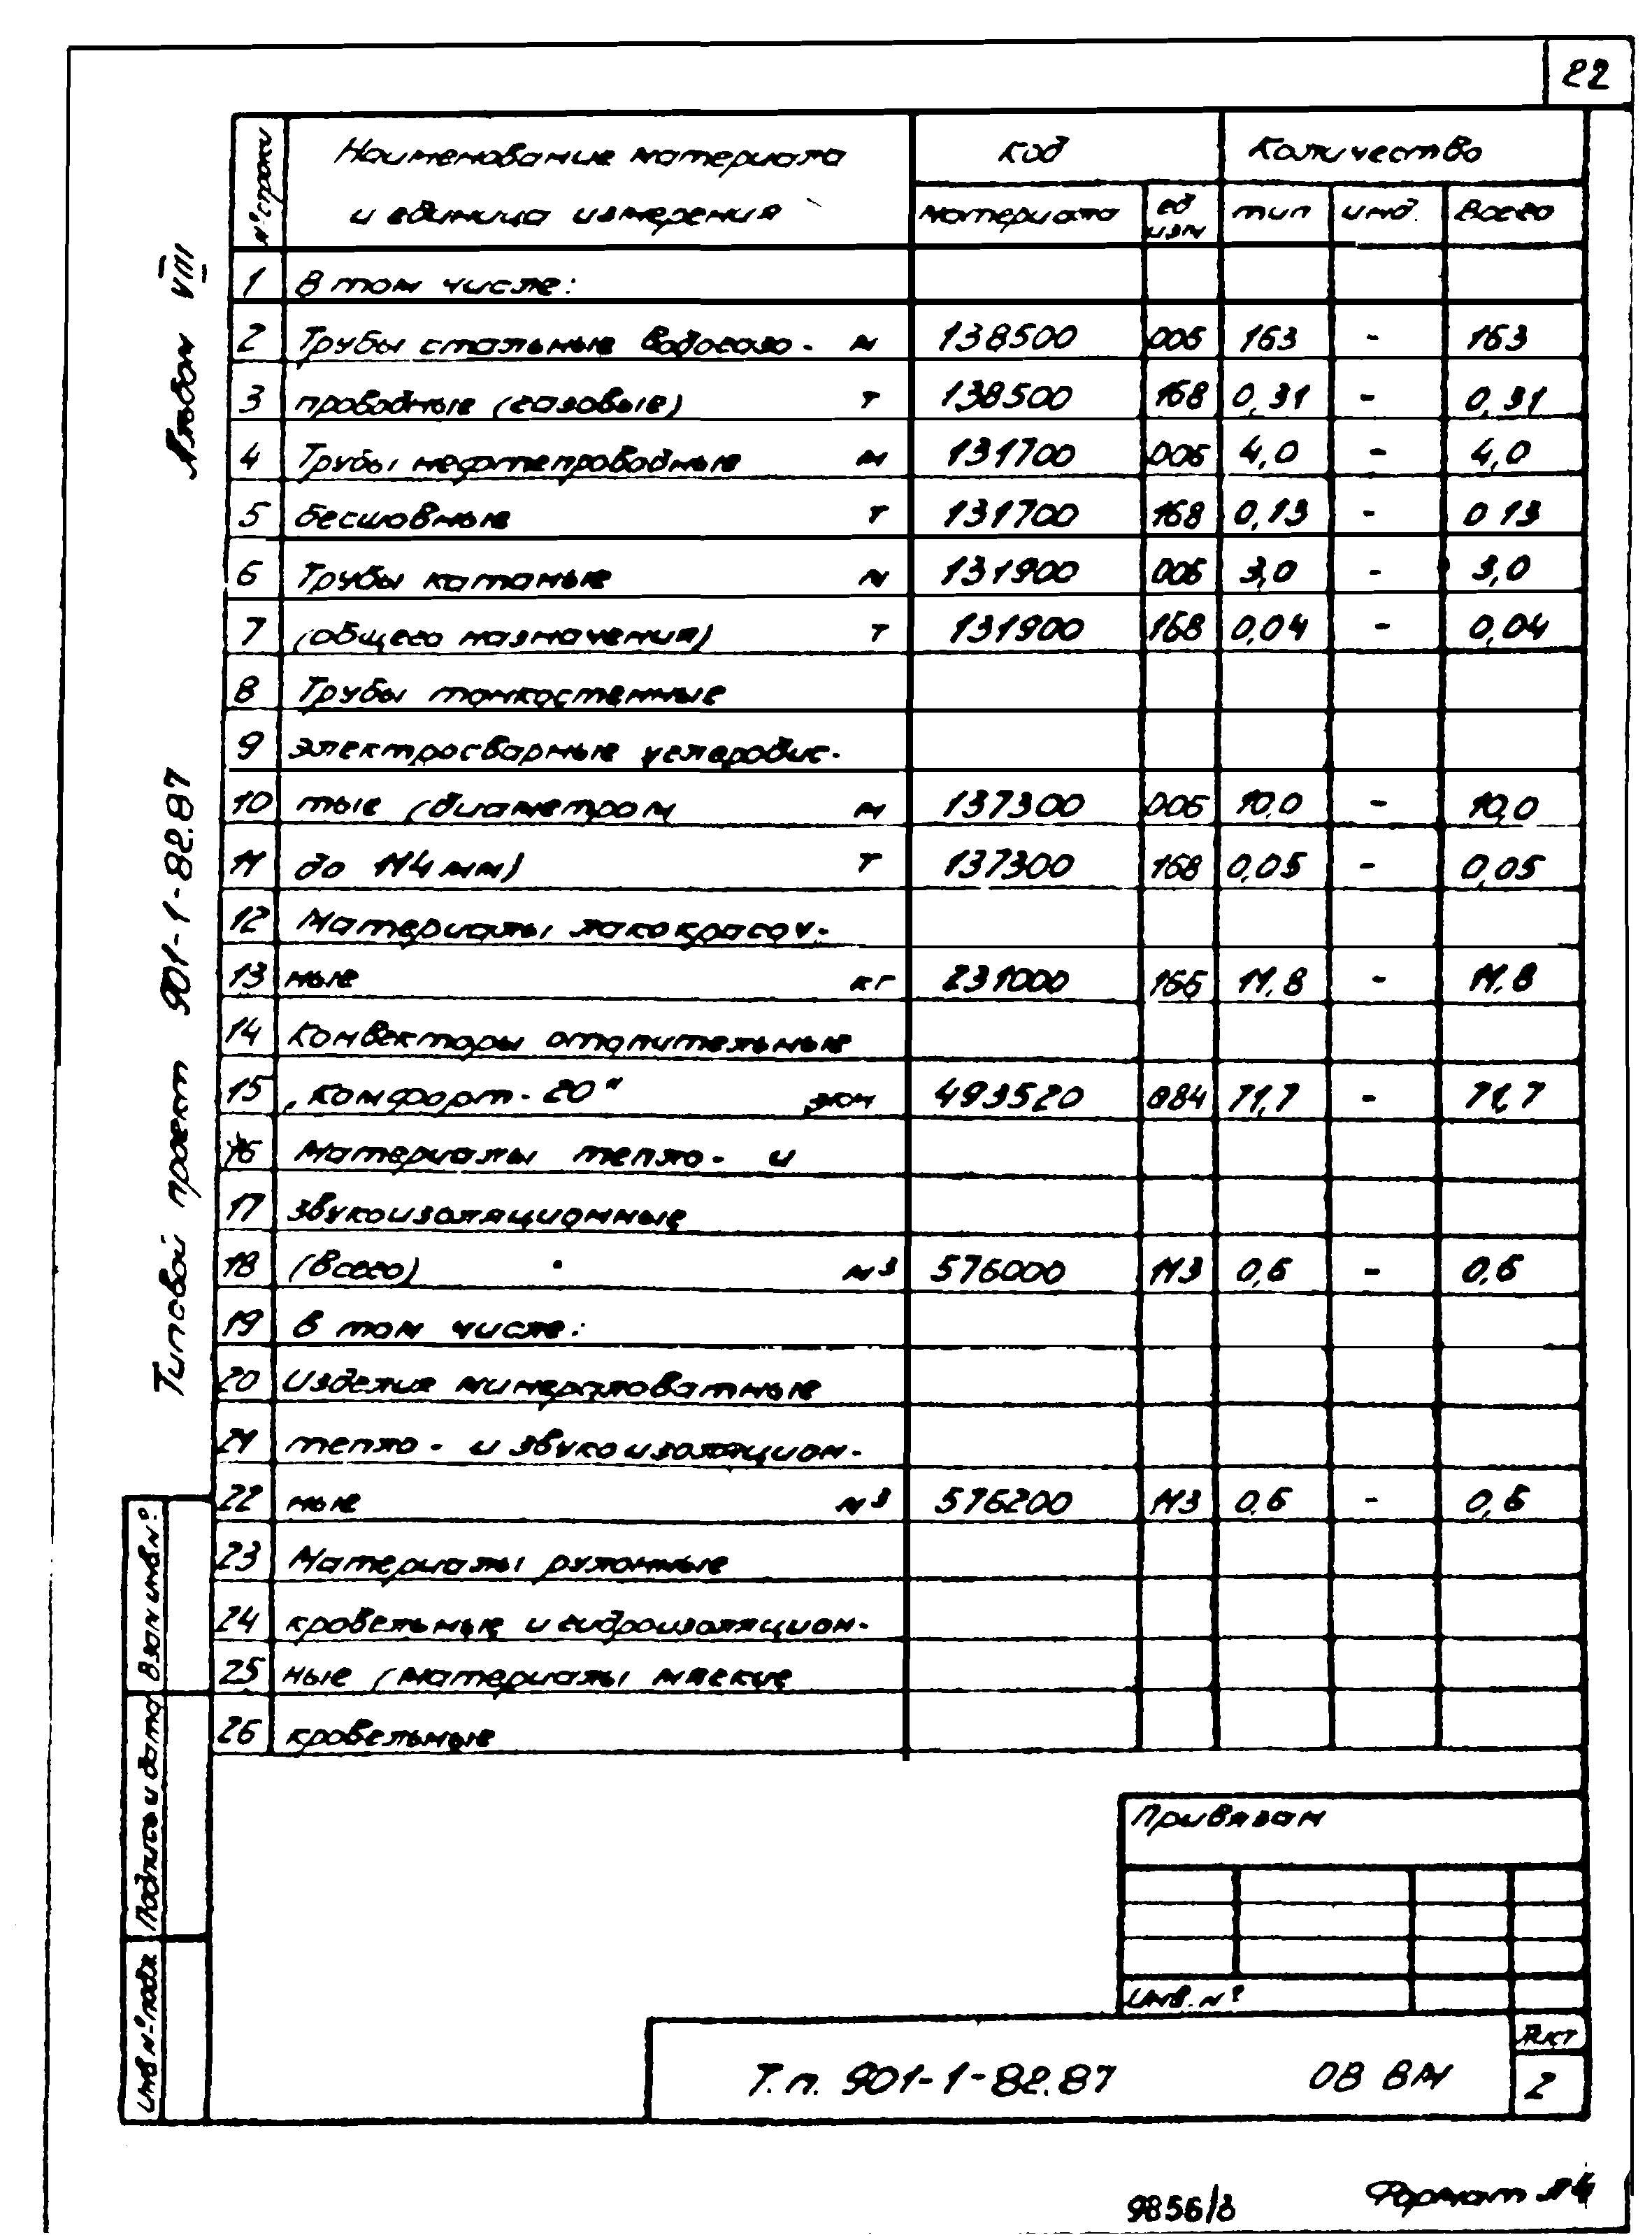 22
№ строки
Наименование материала
и единица измерения
Код
Количество
материала
ед изм
тип
инд.
Всего
1 В том числе:
2 Трубы стальные водогазо- м 138500 006 163 - 163
3 проводные (газовые) т 138500 168 0,31 - 0,31
4 Трубы нефтепроводные м 131700 006 4,0 - 4,0
5 бесшовные т 131700 168 0,13 - 0 13
6 Трубы катаные м 131900 006 3,0 - 3,0
7 (общего назначения) т 131900 168 0,04 - 0,04
8 Трубы тонкостенные
9 электросварные углеродис-
10 тые (диаметром м 137300 006 10,0 - 10,0
11 до 114 мм) т 137300 168 0,05 - 0,05
12 Материалы лакокрасоч-
13 ные кг 231000 166 11,8 - 11,8
14 Конвекторы отопительные
15 „Комфорт-20" экм 493520 084 71,7 - 71,7
16 Материалы тепло- и
17 звукоизоляционные
18 (всего) м³ 576000 113 0,6 - 0,6
19 в том числе:
20 Изделия минераловатные
21 тепло- и звукоизоляцион-
22 ные м³ 576200 113 0,6 - 0,6
23 Материалы рулонные
24 кровельные и гидроизоляцион-
25 ные (материалы мягкие
26 кровельные
Альбом VIII
Типовой проект 901-1-82.87
Взам инв №
Подпись и дата
Инв № подл
Привязан
Инв. №
Т.п. 901-1-82.87 ОВ ВМ
Лист
2
9856/8
Формат А4